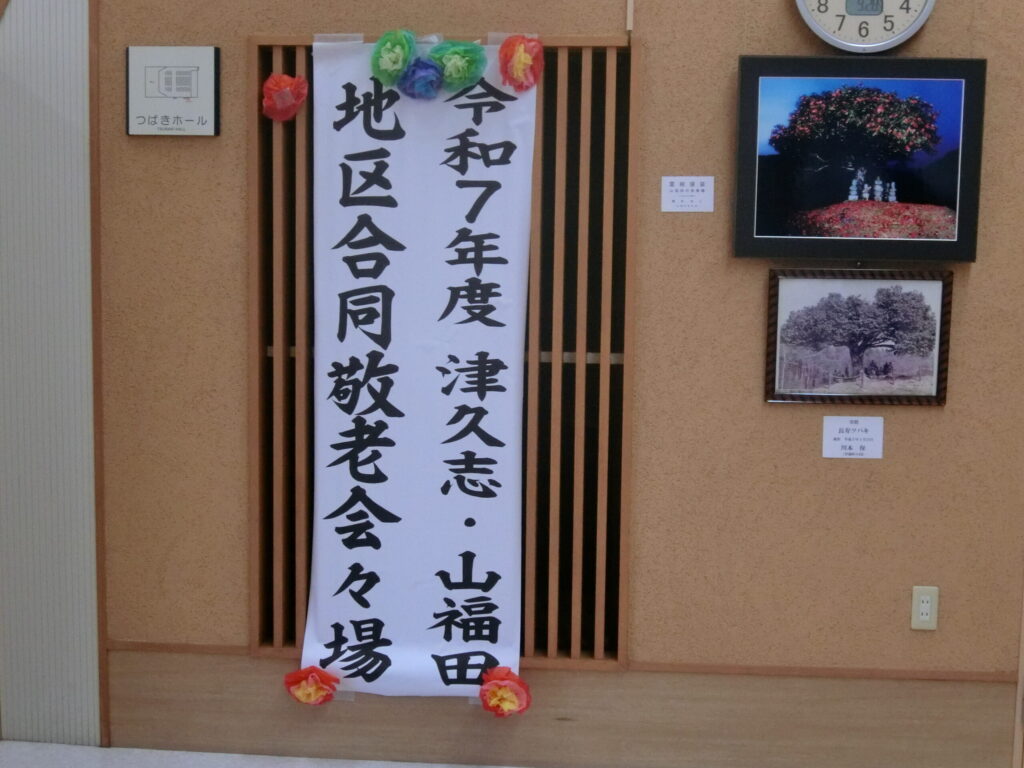 令和7年度 津久志・山福田
地区合同敬老会々場
つばきホール
TSUBAKI HALL
8 7 6 5 4
長寿ツバキ